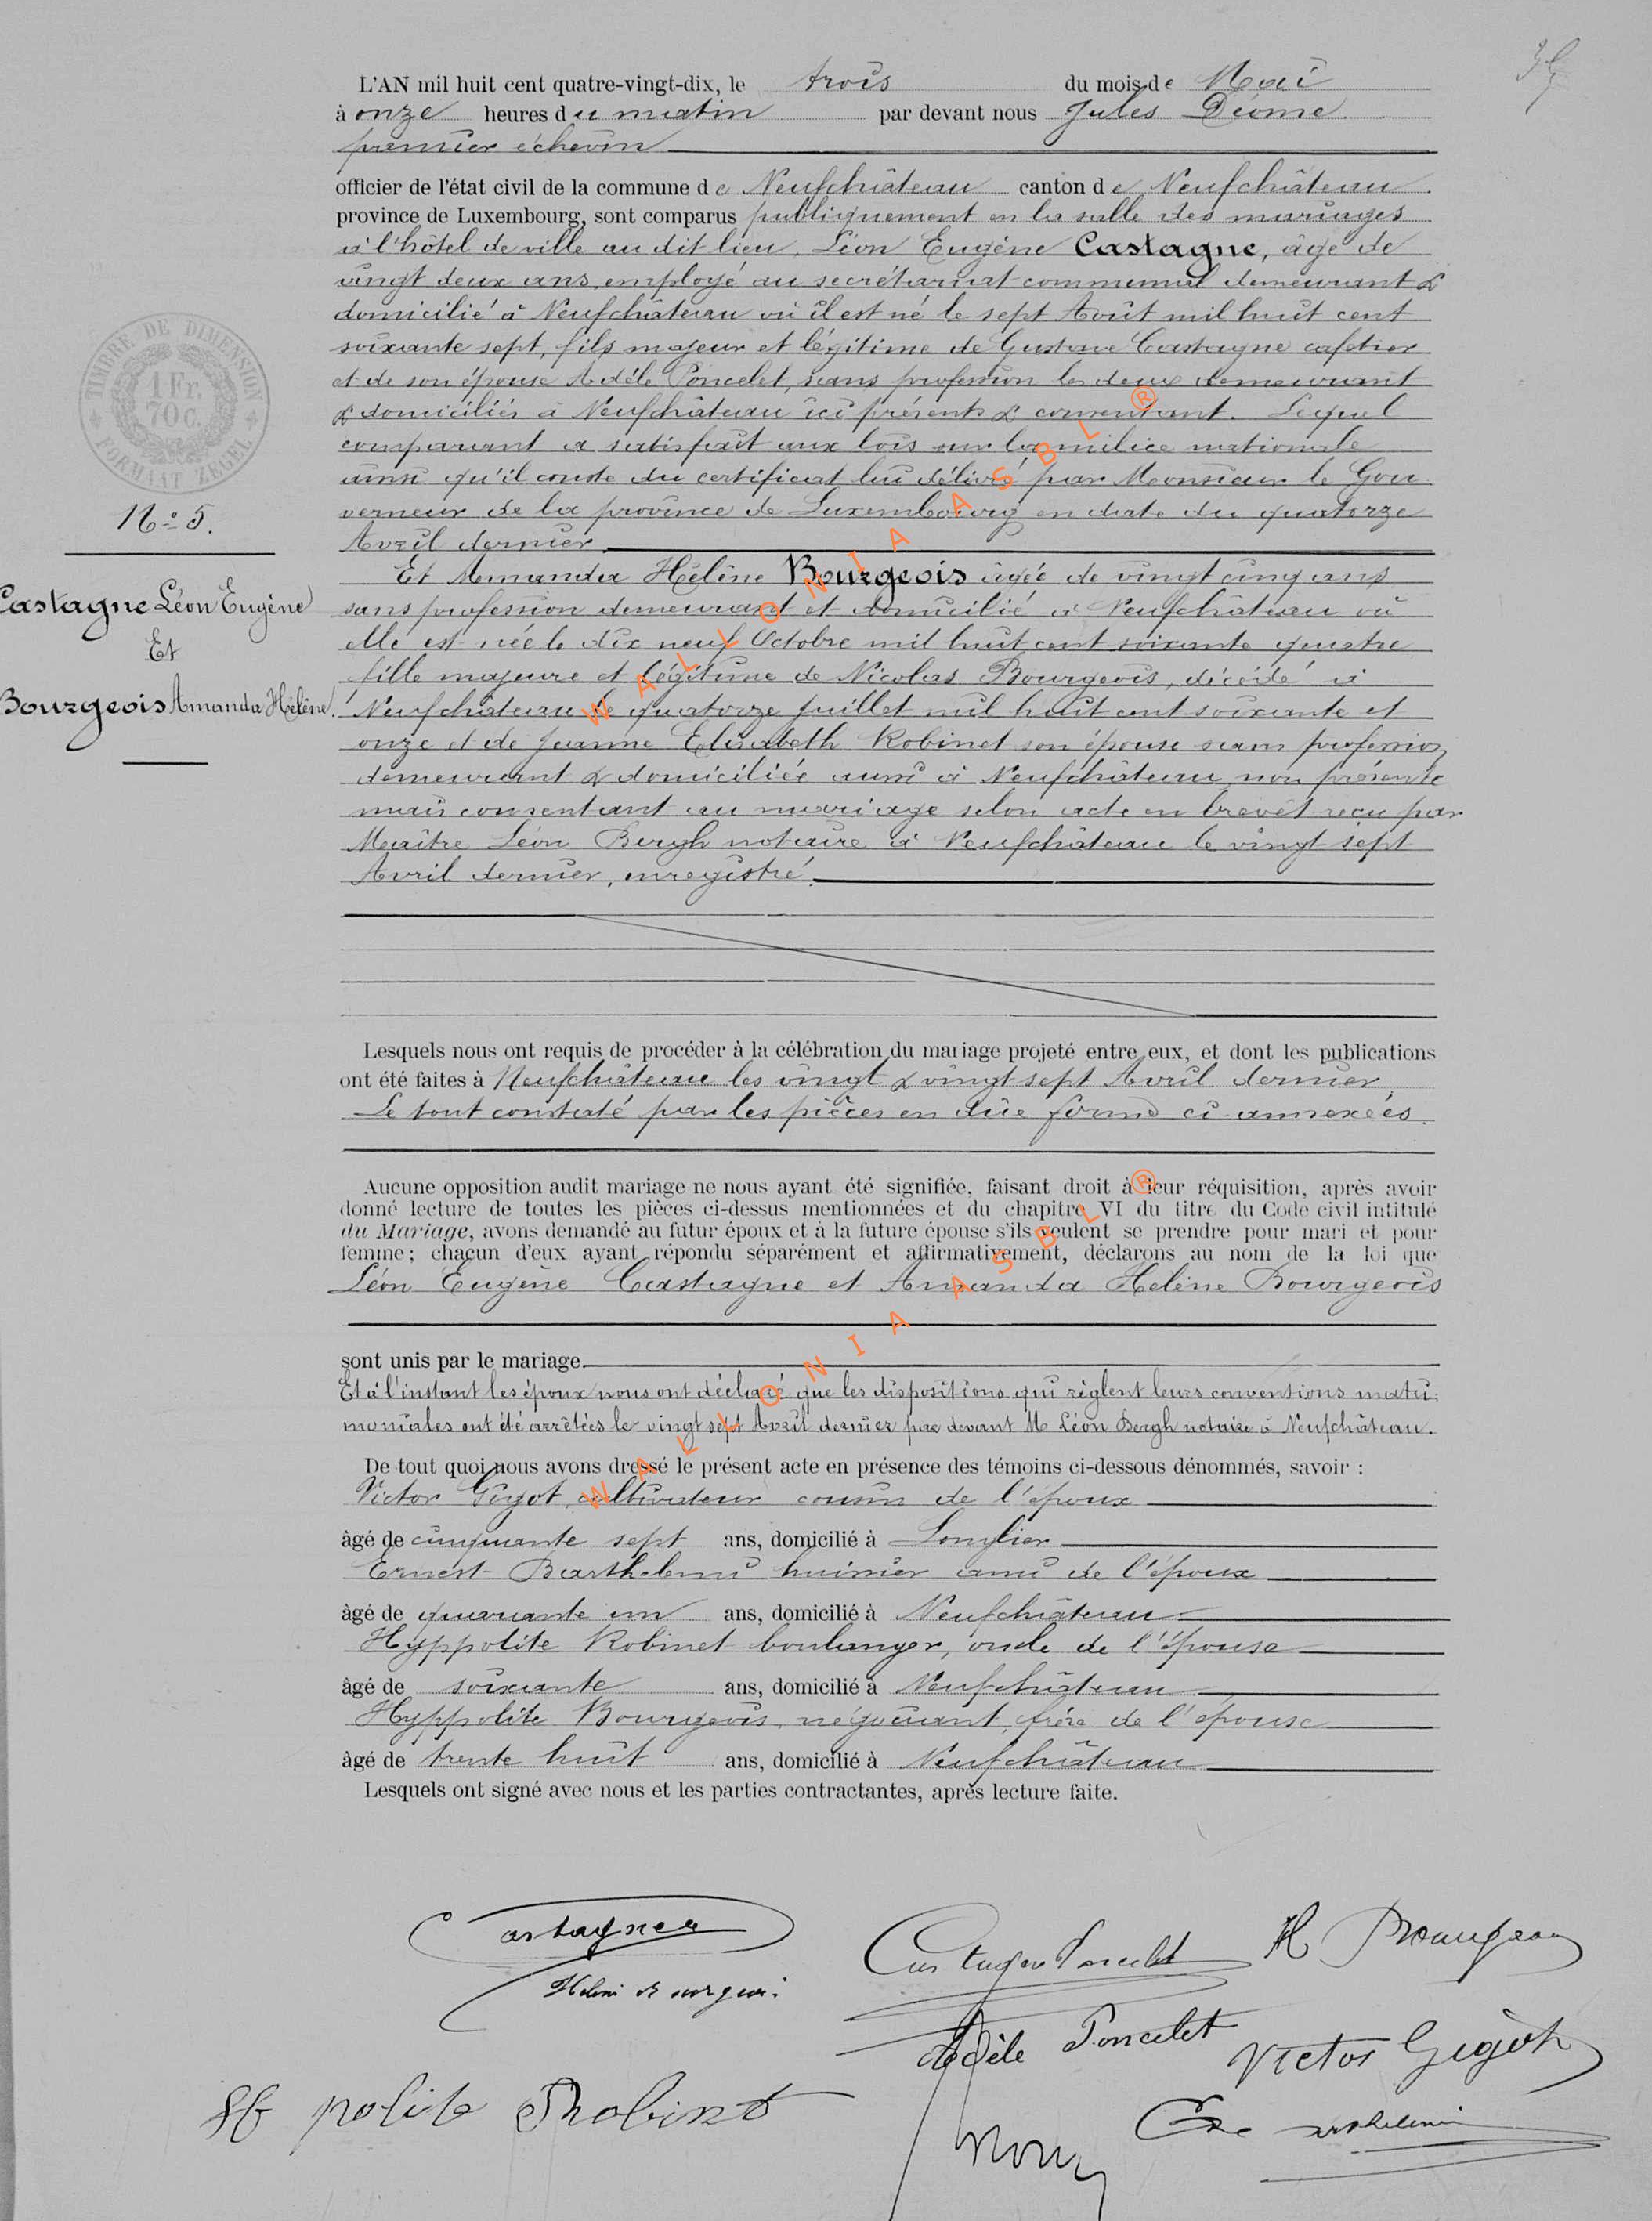 L'AN mil huit cent quatre-vingt-dix, le trois du mois de Mai
à onze heures du matin par devant nous Jules Déome
premier échevin
officier de l'état civil de la commune de Neufchâteau canton de Neufchâteau
province de Luxembourg, sont comparus publiquement en la salle des mariages
à l'hôtel de ville au dit lieu, Léon Eugène Castagne, âgé de
vingt deux ans, employé au secrétariat communal demeurant &
domicilié à Neufchâteau où il est né le sept Août mil huit cent
soixante sept, fils majeur et légitime de Gustave Castagne cafetier
et de son épouse Adèle Poncelet, sans profession les deux demeurant
& domiciliés à Neufchâteau ici présents & consentant. Lequel
comparant a satisfait aux lois sur la milice nationale
ainsi qu'il conste du certificat lui délivré par Monsieur le Gou
verneur de la province de Luxembourg en date du quatorze
Avril dernier.
Et Amanda Hélène Bourgeois âgée de vingt cinq ans
sans profession demeurant et domicilié à Neufchâteau où
elle est née le dix neuf Octobre mil huit cent soixante quatre
fille majeure et légitime de Nicolas Bourgeois, décédé à
Neufchâteau le quatorze Juillet mil huit cent soixante et
onze et de Jeanne Elisabeth Robinet son épouse sans profession
demeurant & domiciliée aussi à Neufchâteau non présente
mais consentant au mariage selon acte en brevet reçu par
Maître Léon Bergh notaire à Neufchâteau le vingt sept
Avril dernier, enregistré.
TIMBRE DE DIMENSION
1 Fr.
70 C.
FORMAAT ZEGEL
No 5.
Castagne Léon Eugène
Et
Bourgeois Amanda Hélène.
Lesquels nous ont requis de procéder à la célébration du mariage projeté entre eux, et dont les publications
ont été faites à Neufchâteau les vingt & vingt sept Avril dernier
Le tout constaté par les pièces en dûe forme ci-annexées.
Aucune opposition audit mariage ne nous ayant été signifiée, faisant droit à leur réquisition, après avoir
donné lecture de toutes les pièces ci-dessus mentionnées et du chapitre VI du titre du Code civil intitulé
du Mariage, avons demandé au futur époux et à la future épouse s'ils veulent se prendre pour mari et pour
femme; chacun d'eux ayant répondu séparément et affirmativement, déclarons au nom de la loi que
Léon Eugène Castagne et Amanda Hélène Bourgeois
sont unis par le mariage.
Et à l'instant les époux nous ont déclaré que les dispositions qui règlent leurs conventions matri
moniales ont été arrêtées le vingt sept Avril dernier par devant Me Léon Bergh notaire à Neufchâteau.
De tout quoi nous avons dressé le présent acte en présence des témoins ci-dessous dénommés, savoir :
Victor Gigot, cultivateur cousin de l'époux
âgé de cinquante sept ans, domicilié à Longlier
Ernest Barthelemi huissier ami de l'époux
âgé de quarante un ans, domicilié à Neufchâteau
Hyppolite Robinet boulanger, oncle de l'épouse
âgé de soixante ans, domicilié à Neufchâteau
Hyppolite Bourgeois, négociant, frère de l'épouse
âgé de trente huit ans, domicilié à Neufchâteau
Lesquels ont signé avec nous et les parties contractantes, après lecture faite.
Castagne
Castagne Poncelet
H Bourgeois
Adèle Poncelet
Victor Gigot
polite Robinet
WALLONIA ASBL ®
WALLONIA ASBL ®